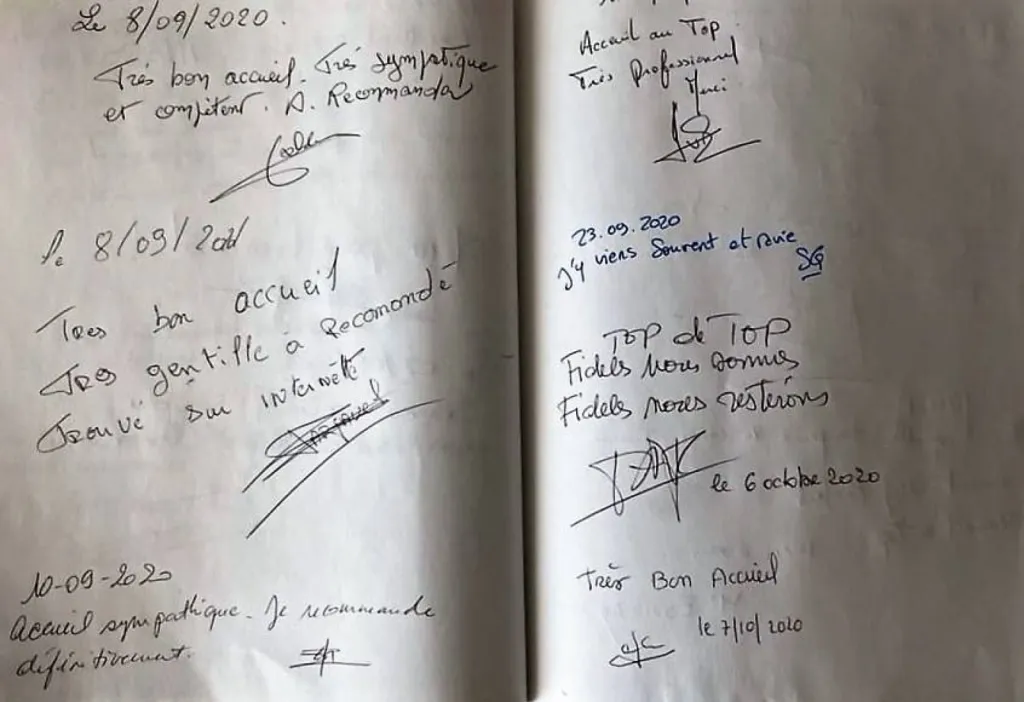 Le 8/09/2020.
Très bon accueil. Très symptique
et compétent. A. Recommandar
le 8/09/20
Tres bon accueil
Tres gentille à Recomondé
Trouvé sur internètte
10-09-2020
Accueil sympathique. Je recommande
définitivement.
Accueil au Top
Très Professionnel
Merci
23.09.2020
J'y viens Souvent et ravie
SG
TOP de TOP
Fidels nous sommes
Fidels nous resterons
le 6 octobre 2020
Très Bon Accueil
le 7/10/2020